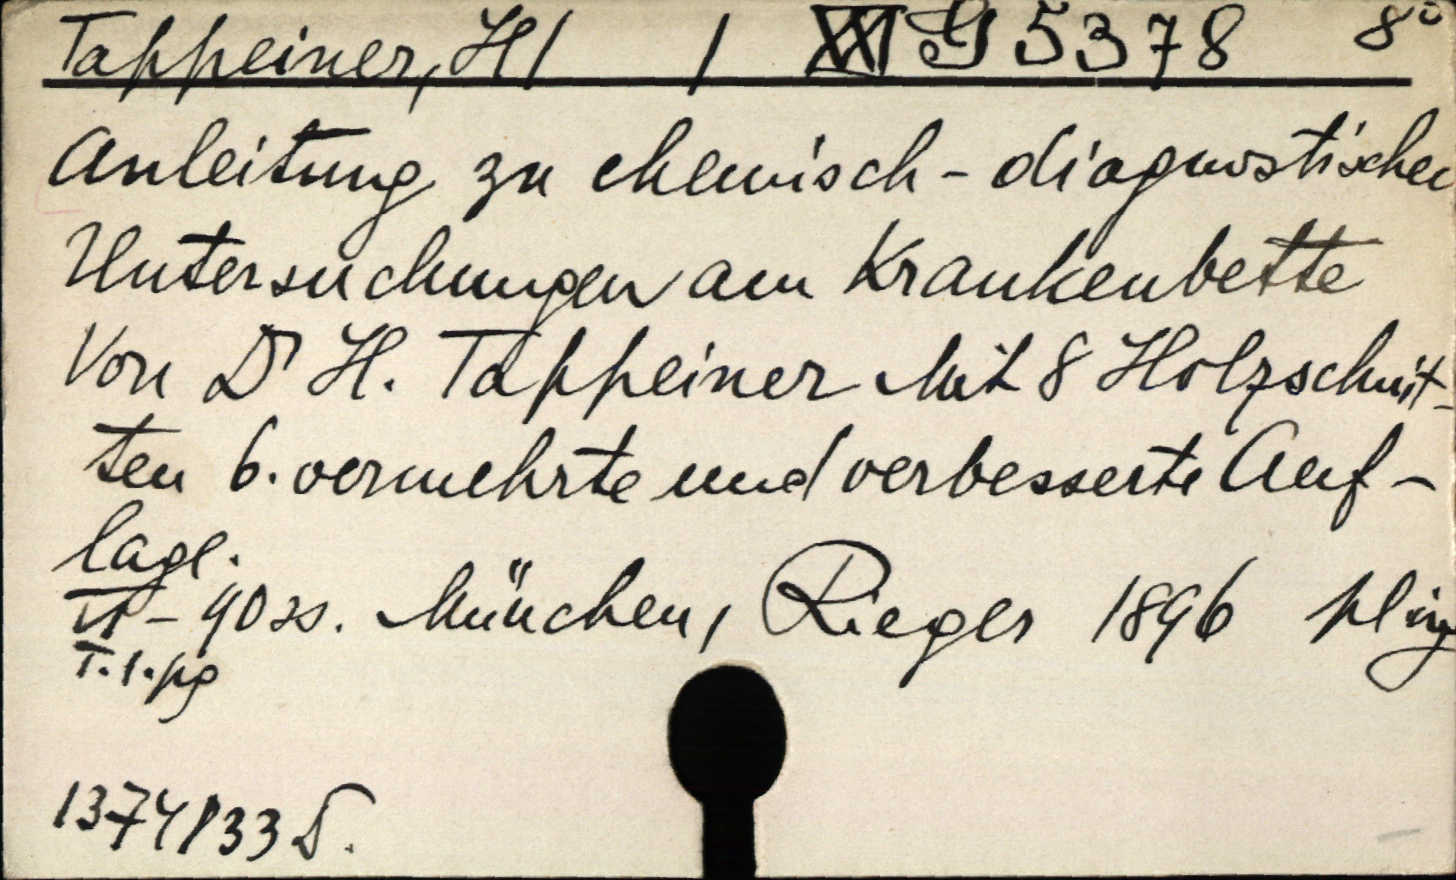 Tappeiner, H/ / XXI G 5378 8°
Anleitung zu chemisch-diagnostischen
Untersuchungen am Krankenbette
Von Dr H. Tappeiner Mit 8 Holzschnit-
ten 6. vermehrte und verbesserte Auf-
lage.
90 ss. München, Rieger 1896
T.1.pg
1374/33 D.